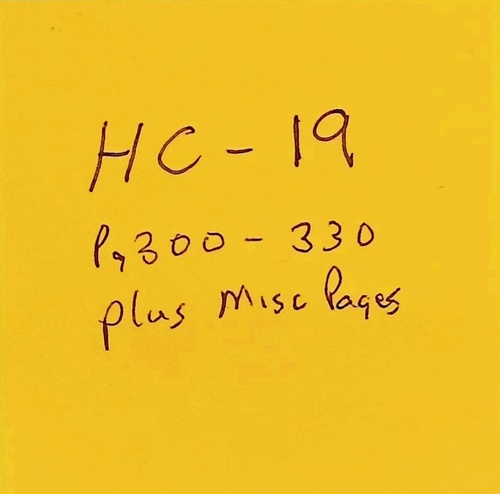 HC - 19
Pg 300 - 330
plus Misc Pages